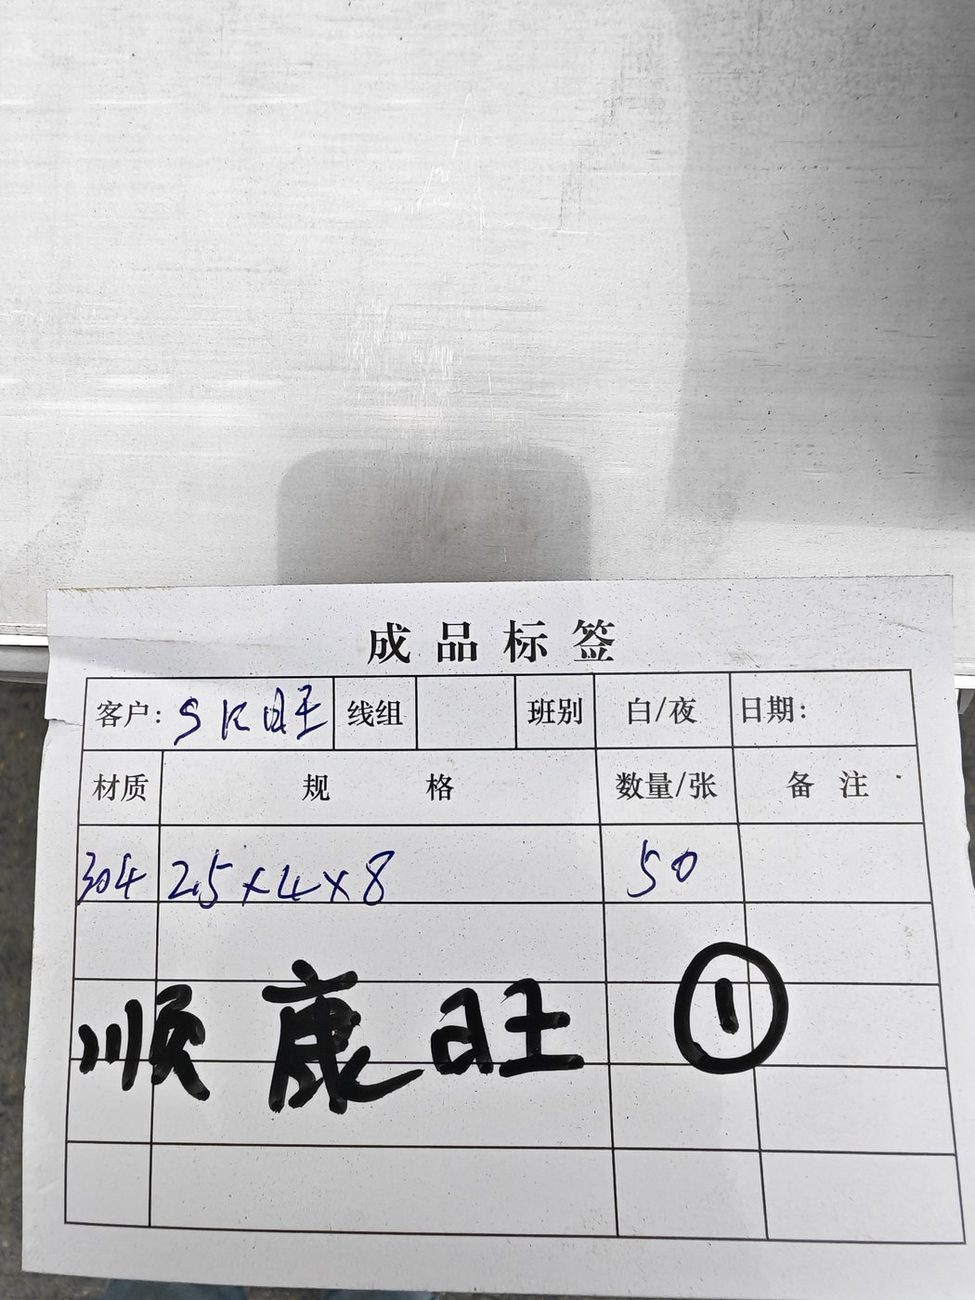 成品标签
客户: SK旺 线组 班别 白/夜 日期:
材质 规格 数量/张 备注
304 2.5×4×8 50
顺康旺 ①